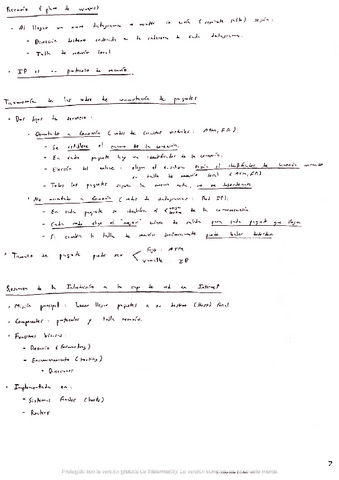 Reenvío (plano de usuario)
- Al llegar un nuevo datagrama a router lo envía (siguiente salto) según:
- Dirección destino contenida en la cabecera de cada datagrama.
- Tabla de reenvío local
- IP es un protocolo de reenvío.
Taxonomía de las redes de conmutación de paquetes
- Dos tipos de servicio:
- Orientado a Conexión (redes de circuitos virtuales: ATM, FR):
- Se establece el camino de la conexión
- En cada paquete hay un identificador de la conexión.
- Elección del enlace: según el identificador de conexión
su tabla de reenvío local (ATM, FR)
- Todos los paquetes siguen la misma ruta,
- No orientado a Conexión (redes de datagramas: Red IP):
- En cada paquete se identifica el de la comunicación
- Cada nodo elige el "mejor" enlace de salida para cada paquete que llega
- Si cambia la tabla de reenvío puede haber desorden
- Tamaño de paquete puede ser fijo: ATM
variable IP
Resumen de la Introducción a la capa de red en Internet
- Misión principal: hacer llegar paquetes a su destino (Host) final
- Componentes: protocolos y tabla reenvío.
- Funciones básicas:
- Reenvío (forwarding)
- Encaminamiento (routing)
- Direcciones
- Implementada en:
- Sistemas finales (hosts)
- Routers
7